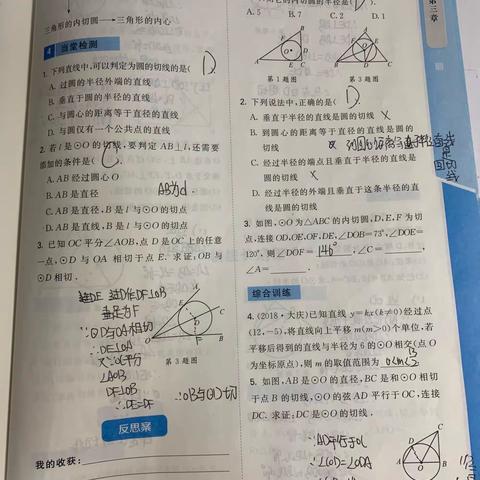 三角形的内切圆→三角形的内心
4 当堂检测
1. 下列直线中,可以判定为圆的切线的是( D )
A. 过圆的半径外端的直线
B. 垂直于圆的半径的直线
C. 与圆心的距离等于直径的直线
D. 与圆仅有一个公共点的直线
2. 若 l 是⊙O 的切线,要判定 AB⊥l,还需要
添加的条件是( C )
A. AB 经过圆心 O
B. AB 是直径
AB为d.
C. AB 是直径,B 是 l 与⊙O 的切点
D. AB 是直线,B 是 l 与⊙O 的切点
3. 已知 OC 平分∠AOB,点 D 是 OC 上的任意
一点,⊙D 与 OA 相切于点 E. 求证,OB 与
⊙D 相切.
连DE 过D作DF⊥OB
垂足为F
∵⊙D与OA相切
∴DE⊥OA
又∵OC平分
∠AOB
DF⊥OB
∴DE=DF
∴OB与⊙D切
E
A
D
C
O
F
B
第 3 题图
反思案
我的收获:
第三章
A. 5 B. 7 C. 2 D. 1
第 1 题图
第 3 题图
2. 下列说法中,正确的是( D )
A. 垂直于半径的直线是圆的切线 ×
B. 到圆心的距离等于直径的直线是圆的
切线
C. 经过半径的端点且垂直于半径的直线是
圆的切线 ×
D. 经过半径的外端且垂直于这条半径的直
线是圆的切线
3. 如图,⊙O 为△ABC 的内切圆,D,E,F 为切
点,连接 OD,OE,OF,DE,∠DOB=73°,∠DOE=
120°,则∠DOF= 146° ,∠C= ,
∠A= .
综合训练
4. (2018·大庆)已知直线 y=kx(k≠0)经过点
(12,-5),将直线向上平移 m(m>0)个单位,若
平移后得到的直线与半径为 6 的⊙O 相交(点 O
为坐标原点),则 m 的取值范围为
5. 如图,AB 是⊙O 的直径,BC 是和⊙O 相切
于点 B 的切线,⊙O 的弦 AD 平行于 OC,连接
DC. 求证:DC 是⊙O 的切线.
∵AD平行于OC
∴∠COD=∠ODA
D
C
A
O
B